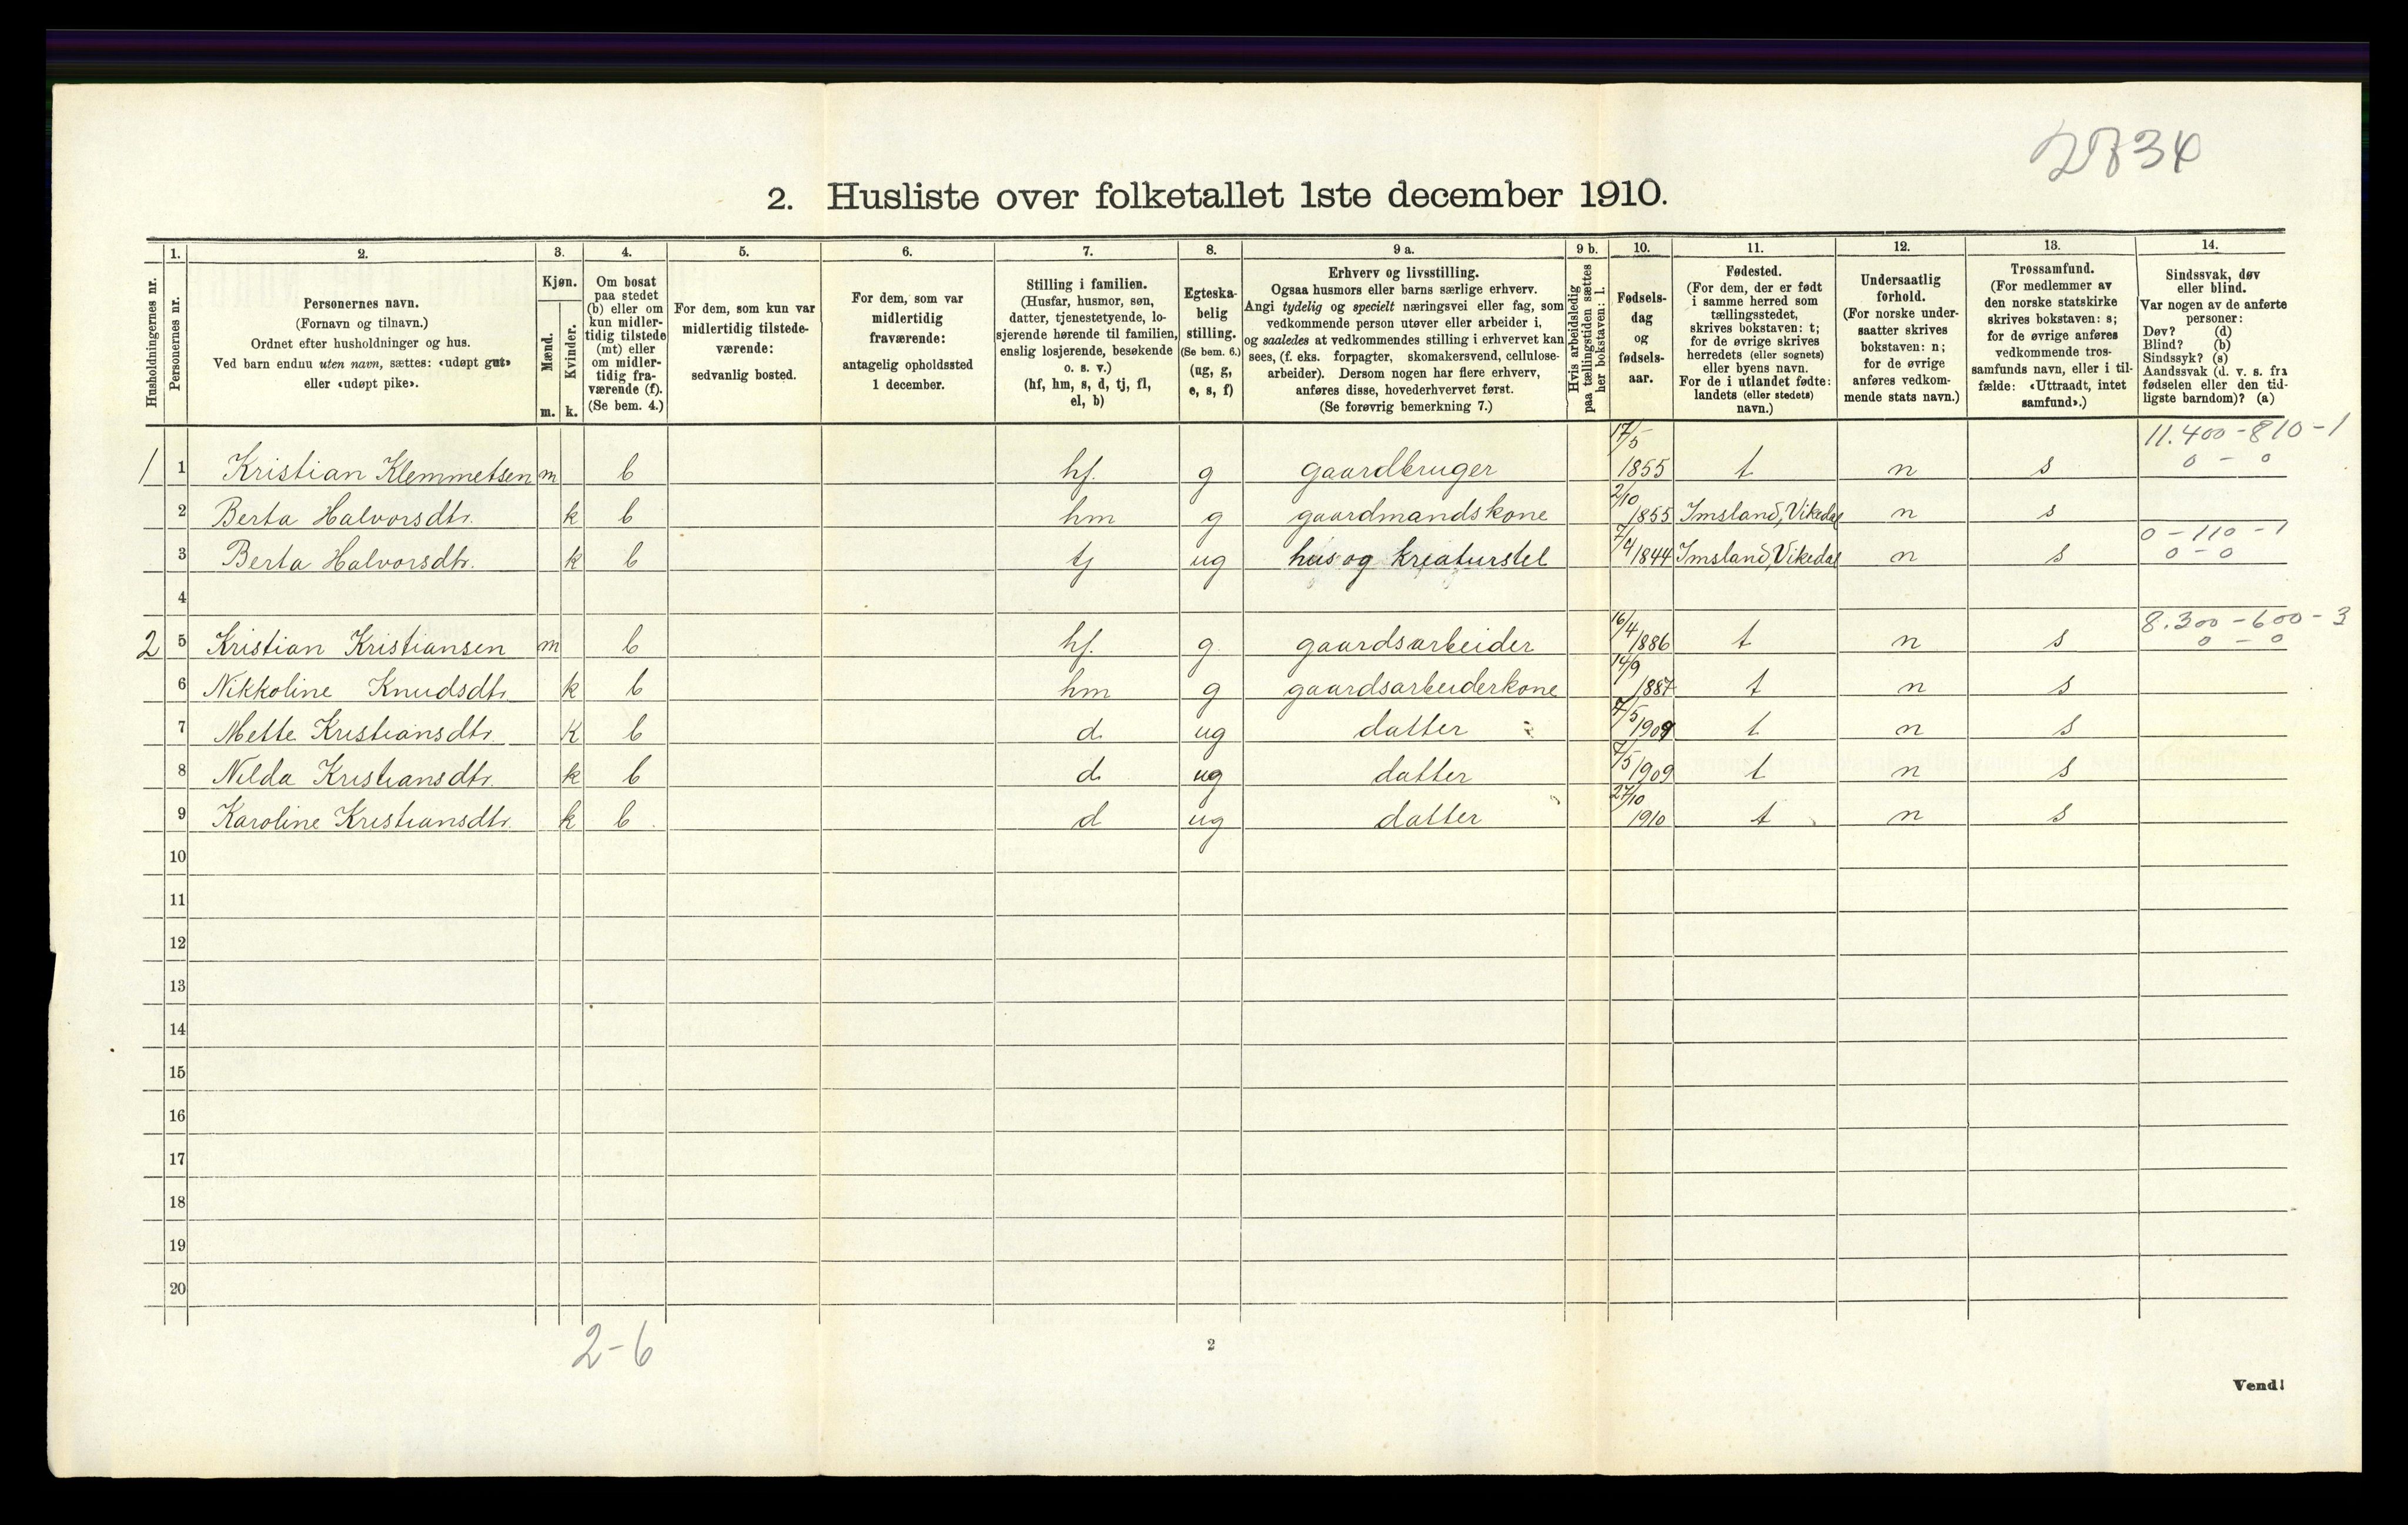 2834
2. Husliste over folketallet 1ste december 1910.
Husholdningernes nr.
1.
Personernes nr.
2.
Personernes navn.
(Fornavn og tilnavn.)
Ordnet efter husholdninger og hus.
Ved barn endnu uten navn, sættes: «udøpt gut»
eller «udøpt pike».
3.
Kjøn.
Mænd.
Kvinder.
m.
k.
4.
Om bosat
paa stedet
(b) eller om
kun midler-
tidig tilstede
(mt) eller
om midler-
tidig fra-
værende (f).
(Se bem. 4.)
5.
For dem, som kun var
midlertidig tilstede-
værende:
sedvanlig bosted.
6.
For dem, som var
midlertidig
fraværende:
antagelig opholdssted
1 december.
7.
Stilling i familien.
(Husfar, husmor, søn,
datter, tjenestetyende, lo-
sjerende hørende til familien,
enslig losjerende, besøkende
o. s. v.)
(hf, hm, s, d, tj, fl,
el, b)
8.
Egteska-
belig
stilling.
(Se bem. 6.)
(ug, g,
e, s, f)
9 a.
Erhverv og livsstilling.
Ogsaa husmors eller barns særlige erhverv.
Angi tydelig og specielt næringsvei eller fag, som
vedkommende person utøver eller arbeider i,
og saaledes at vedkommendes stilling i erhvervet kan
sees, (f. eks. forpagter, skomakersvend, cellulose-
arbeider). Dersom nogen har flere erhverv,
anføres disse, hovederhvervet først.
(Se forøvrig bemerkning 7.)
9 b.
Hvis arbeidsledig
paa tællingstiden sættes
her bokstaven: l.
10.
Fødsels-
dag
og
fødsels-
aar.
11.
Fødested.
(For dem, der er født
i samme herred som
tællingsstedet,
skrives bokstaven: t;
for de øvrige skrives
herredets (eller sognets)
eller byens navn.
For de i utlandet fødte:
landets (eller stedets)
navn.)
12.
Undersaatlig
forhold.
(For norske under-
saatter skrives
bokstaven: n;
for de øvrige
anføres vedkom-
mende stats navn.)
13.
Trossamfund.
(For medlemmer av
den norske statskirke
skrives bokstaven: s;
for de øvrige anføres
vedkommende tros-
samfunds navn, eller i til-
fælde: «Uttraadt, intet
samfund».)
14.
Sindssvak, døv
eller blind.
Var nogen av de anførte
personer:
Døv? (d)
Blind? (b)
Sindssyk? (s)
Aandssvak (d. v. s. fra
fødselen eller den tid-
ligste barndom)? (a)
1 1 Kristian Klemmetsen m b hf. g gaardbruger 17/5 1855 t n s 11.400 - 810 - 1 0 - 0
2 Berta Halvorsdtr. k b hm g gaardmandskone 2/10 1855 Imsland, Vikedal n s
3 Berta Halvorsdtr. k b tj ug hus og kreaturstel 7/4 1844 Imsland, Vikedal n s 0 - 110 - 1 0 - 0
4
2 5 Kristian Kristiansen m b hf. g. gaardsarbeider 16/4 1886 t n s 8.300 - 600 - 3 0 - 0
6 Nikkoline Knudsdtr. k b hm g gaardsarbeiderkone 14/9 1887 t n s
7 Mette Kristiansdtr. k b d. ug datter 7/5 1909 t n s
8 Nilda Kristiansdtr. k b d. ug datter 7/5 1909 t n s
9 Karoline Kristiansdtr. k b d ug datter 27/10 1910 t n s
10
11
12
13
14
15
16
17
18
19
20
2-6
2
Vend!